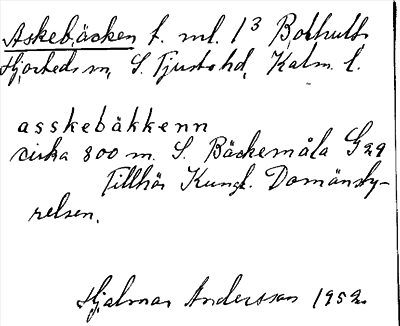 Askebäcken t. ml. 1³ Bothult
Hjorteds sn, S. Tjusts hd, Kalm. l.
asskebäkkenn
cirka 800 m. S. Bäckemåla G29
Tillhör Kungl. Domänsty-
relsen.
Hjalmar Andersson 1952